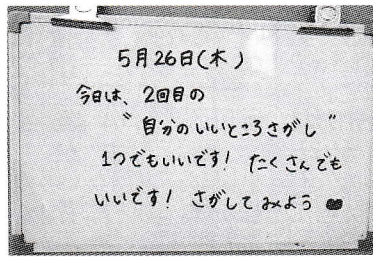 5月26日(木)
今日は、2回目の
"自分のいいところさがし"
1つでもいいです! たくさんでも
いいです! さがしてみよう